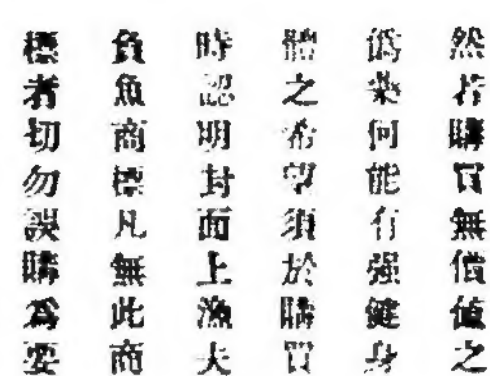 然若購買無價值之
偽藥何能有强健身
體之希望須於購買
時認明封面上漁夫
負魚商標凡無此商
標者切勿誤購爲要